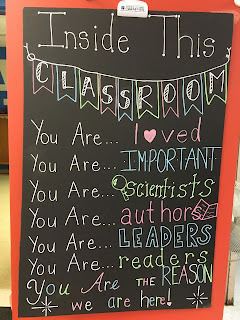 Inside This
CLASSROOM
You Are... loved
You Are... IMPORTANT
You Are... scientists
You Are... authors
You Are... LEADERS
You Are... readers
You Are THE REASON
we are here!